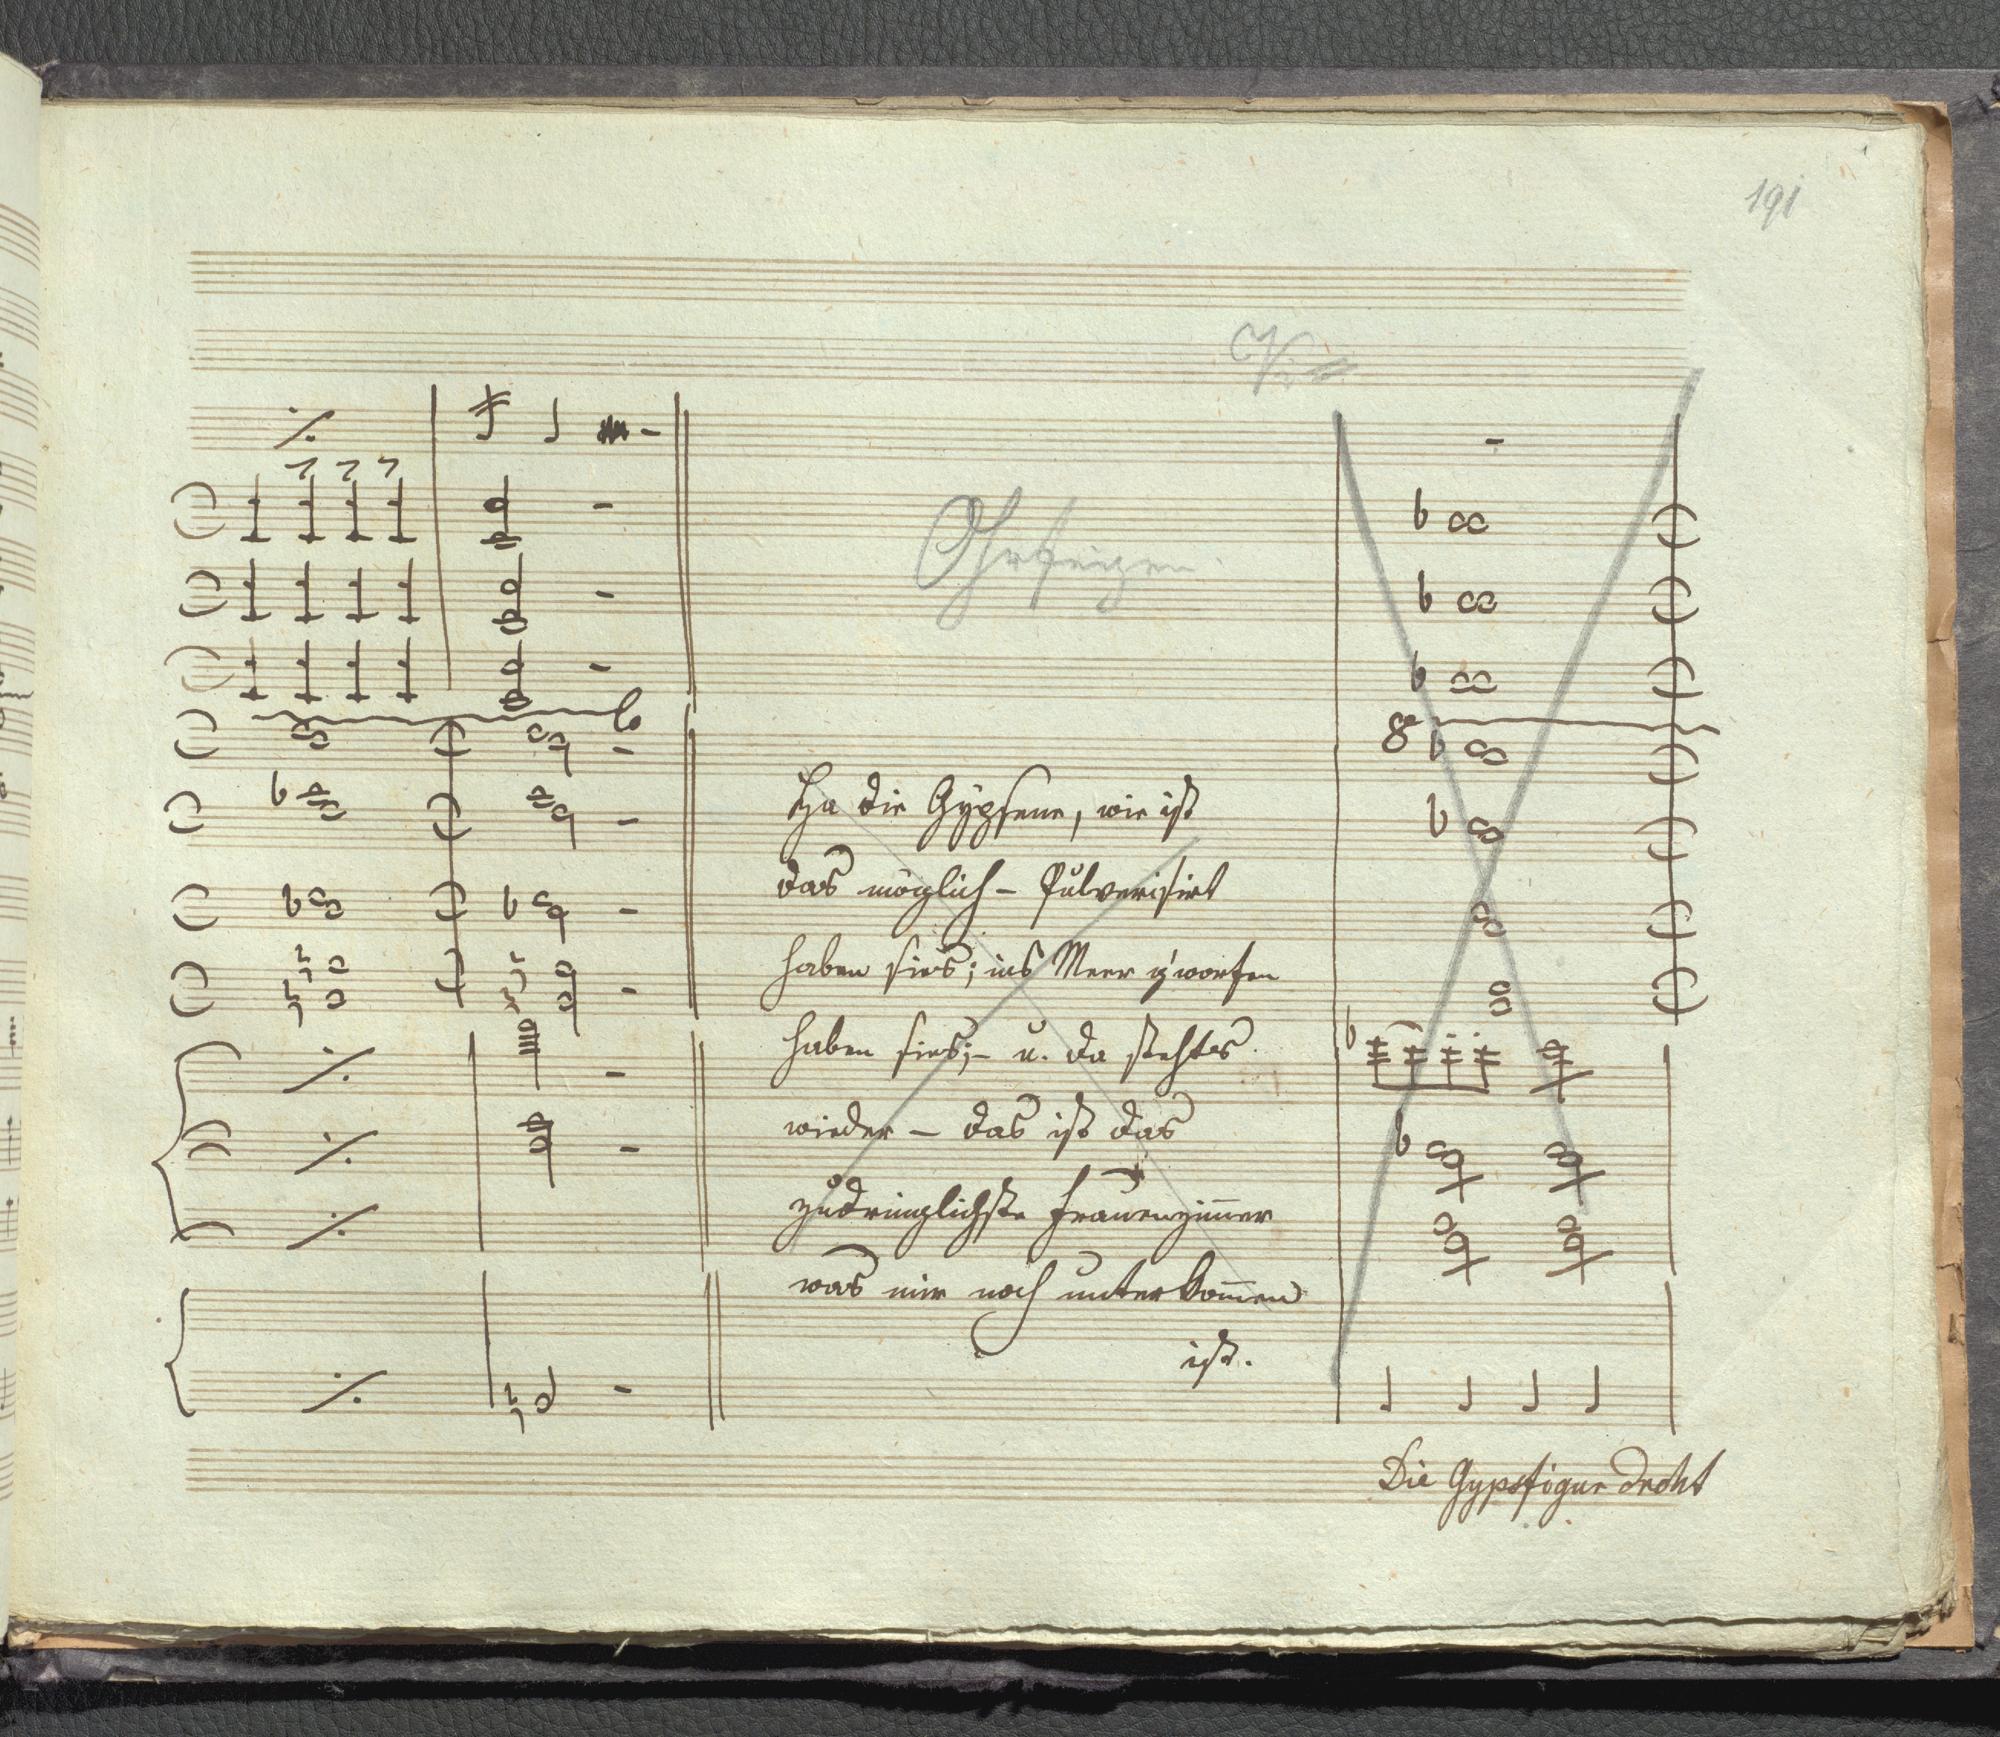 191
Ohrfeigen.
Ha die Gypsene, wie ist
das möglich – Pulverisirt
haben sies; ins Meer g'worfen
haben sies; – u. da stehts
wieder – das ist das
zudringlichste Frauenzim̄er
was mir noch unterkom̄en
ist.
8ª
Die Gypsfigur droht